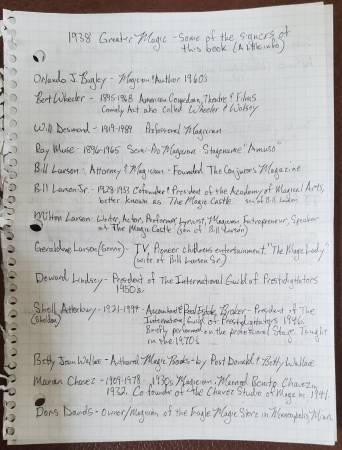 1938 Greater Magic - Some of the signers of
this book (A little info)
Orlando J. Bagley - Magician & Author 1960's
Bert Wheeler - 1895-1968 American Comedian, Theatre & Films
Comedy Act also called Wheeler & Wolsey
Will Desmond - 1919-1989 Professional Magician
Ray Muse - 1896-1965 Semi-Pro Magician Stagename "Amuso"
Bill Larson - Attorney & Magician - Founded The Conjurors Magazine
Bill Larson Jr. - 1928-1993 Cofounder & President of the Academy of Magical Arts,
better known as The Magic Castle son of Bill Larson
Milton Larson - Writer, Actor, Performer, Lyricist, Magician, Entrepreneur, Speaker
at The Magic Castle (son of Bill Larson)
Geraldine Larson (Genni) - TV, Pioneer childrens entertainment, "The Magic Lady"
(wife of Bill Larson Sr.)
Deward Lindsey - President of The International Guild of Prestidigitators
1950's
Shell Atterbury - 1921-1994 - Accountant & Real Estate Broker - President of The
(Sheldon) International Guild of Prestidigitators 1946.
Briefly performed on the professional stage. Taught
in the 1970's
Betty Jean Wallace - Authored Magic Books - by Post Donald & Betty Wallace
Marian Chavez - 1909-1978, 1930's Magician. Married Benito Chavez in
1932. Co founder of the Chavez Studio of Magic in 1941.
Doris Davids - Owner/Magician of the Eagle Magic Store in Minneapolis, Minn.